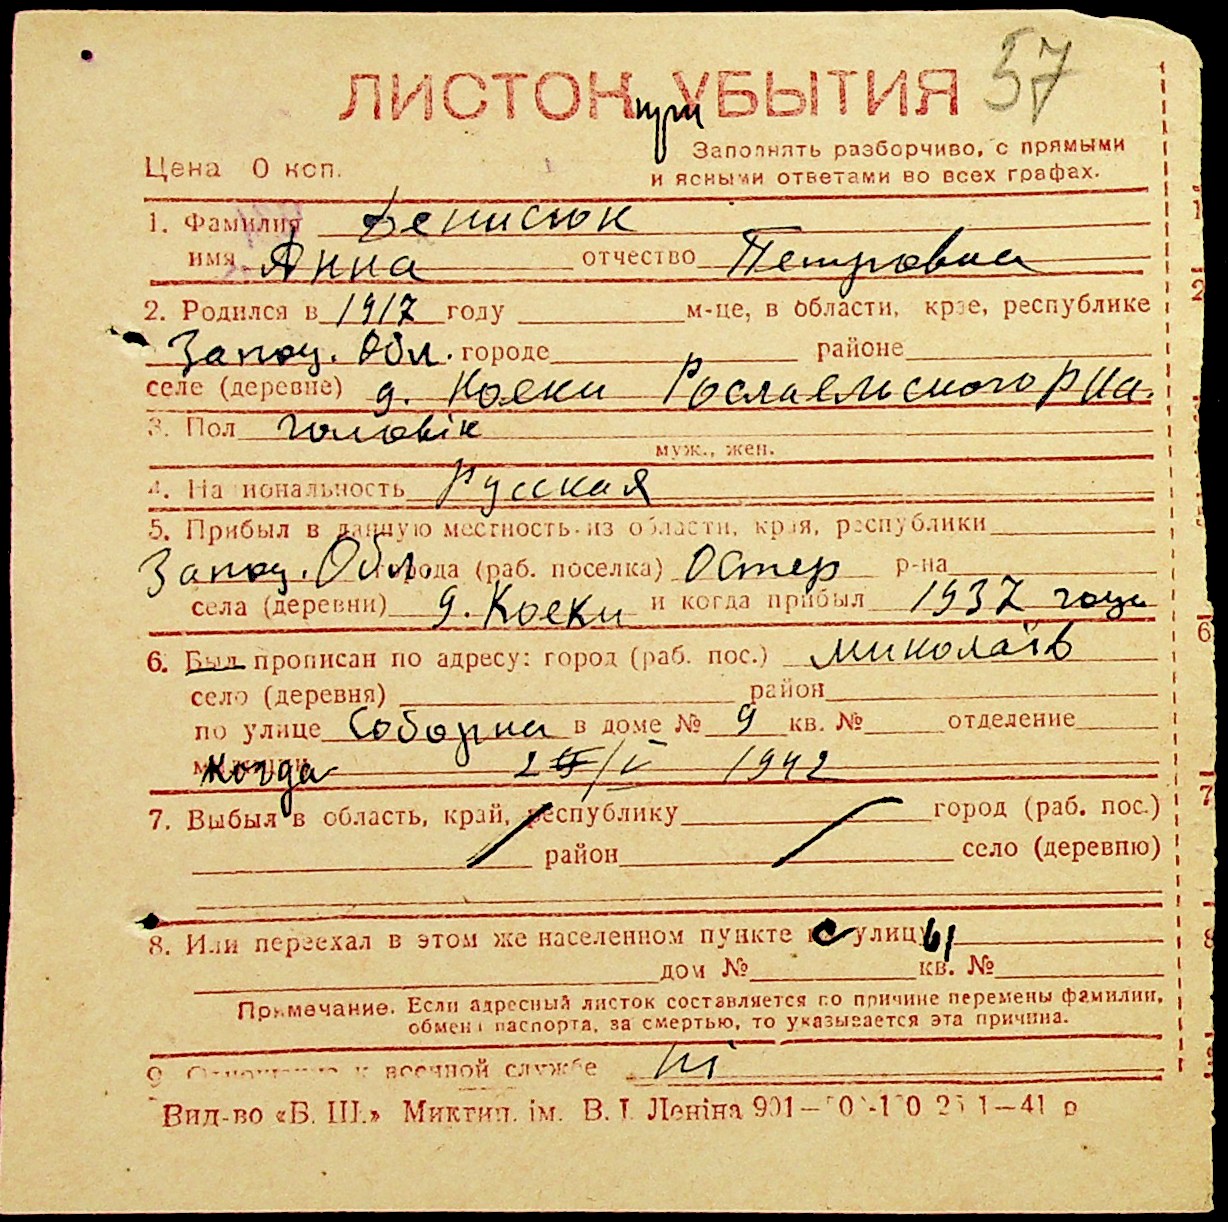 57
ЛИСТОК УБЫТИЯ
при
Цена 0 коп. Заполнять разборчиво, с прямыми
и ясными ответами во всех графах.
1. Фамилия Денисюк
имя Анна отчество Петровна
2. Родился в 1917 году м-це, в области, крае, республике
Запад. Обл. городе районе
селе (деревне) д. Коски Рославльского р на.
3. Пол чоловік
муж., жен.
4. Национальность Русская
5. Прибыл в данную местность из области, края, республики
Запад. Обл. города (раб. поселка) Остер р-на
села (деревни) д. Коски и когда прибыл 1937 года
6. Был прописан по адресу: город (раб. пос.) Миколаїв
село (деревня) район
по улице Соборна в доме № 9 кв. № отделение
когда /V 1942
7. Выбыл в область, край, республику город (раб. пос.)
район село (деревню)
8. Или переехал в этом же населенном пункте с улицы
дом № кв. №
Примечание. Если адресный листок составляется по причине перемены фамилии,
обмена паспорта, за смертью, то указывается эта причина.
9. Отношение к военной службе ні
Вид-во «Б. Ш.» Миктип. ім. В. І. Леніна